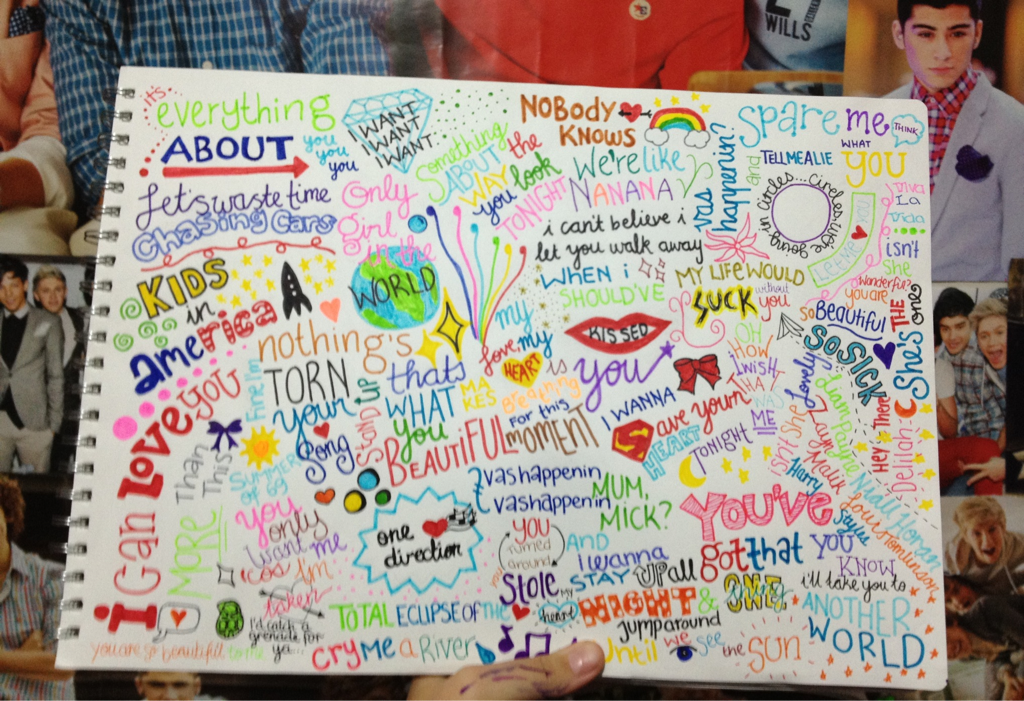 WILLS
it's
everything
ABOUT
you
you
you
I WANT
I WANT
I WANT
something
ABOUT
the
WAY
you
look
TONIGHT
NOBODY
KNOWS
We're like
NANANA
vas
happenin?
spare me
THINK
WHAT
YOU
and
TELL ME A LIE
Circles... Circles, we're going in
VIVA
La
Vida
isn't
She
Wonderful?
Let's waste time
Chasing Cars
Only
girl
in the
WORLD
i can't believe i
let you walk away
WHEN i
SHOULD'VE
KISSED
you
MY LIFE WOULD
SUCK
without
you
you are
so Beautiful
KIDS
in
america
nothing's
fine
I'm
TORN
my
my
love
HEART
is
Breathing
FOR this
MOMENT
OH
HOW
I wish
THAT
WAS
ME
SO SICK
She's THE one
I Can Love YOU
MORE
Than
This
SUMMER
OF 69
your
Song
STAND UP
thats
WHAT
You
MAKES
BEAUTIFUL
I WANNA
save your
HEART
TONIGHT
Isn't She Lovely
Liam Payne
Zayn Malik
Harry
Styles
Niall Horan
Louis Tomlinson
HEY There
Delilah
you
only
want me
cos I'm
taken
one
direction
vashappenin
vashappenin
MUM,
MICK?
YOU'VE
got that
ONE
thing
you
turned
my
around
AND
i wanna
STAY UP all
NIGHT &
jump around
Until
we
see
the
SUN
YOU
KNOW
i'll take you to
ANOTHER
WORLD
Stole
MY
heart
TOTAL ECLIPSE OF THE
I'd catch a
grenade for
ya...
you are so beautiful to me
cry ME a River